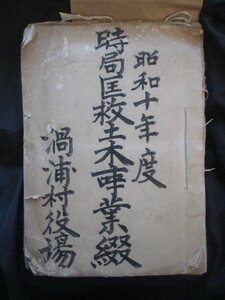 昭和十年度
時局匡救土木事業綴
渦浦村役場